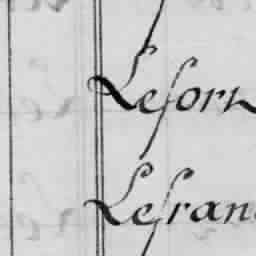 Lesorn
Lefran